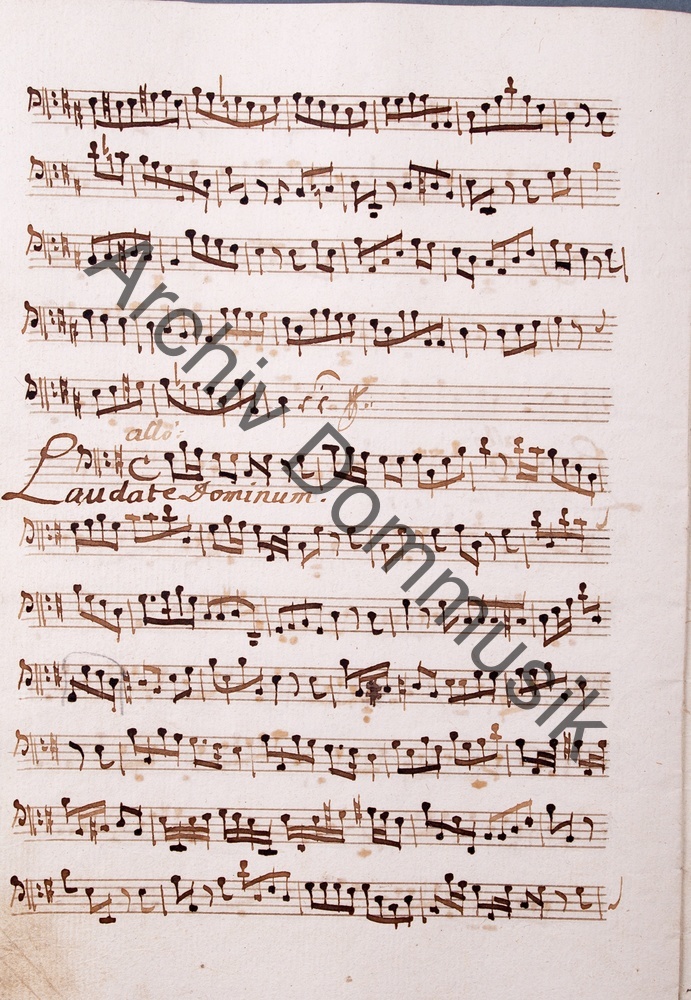 allo:
Laudate Dominum.
Archiv Dommusik